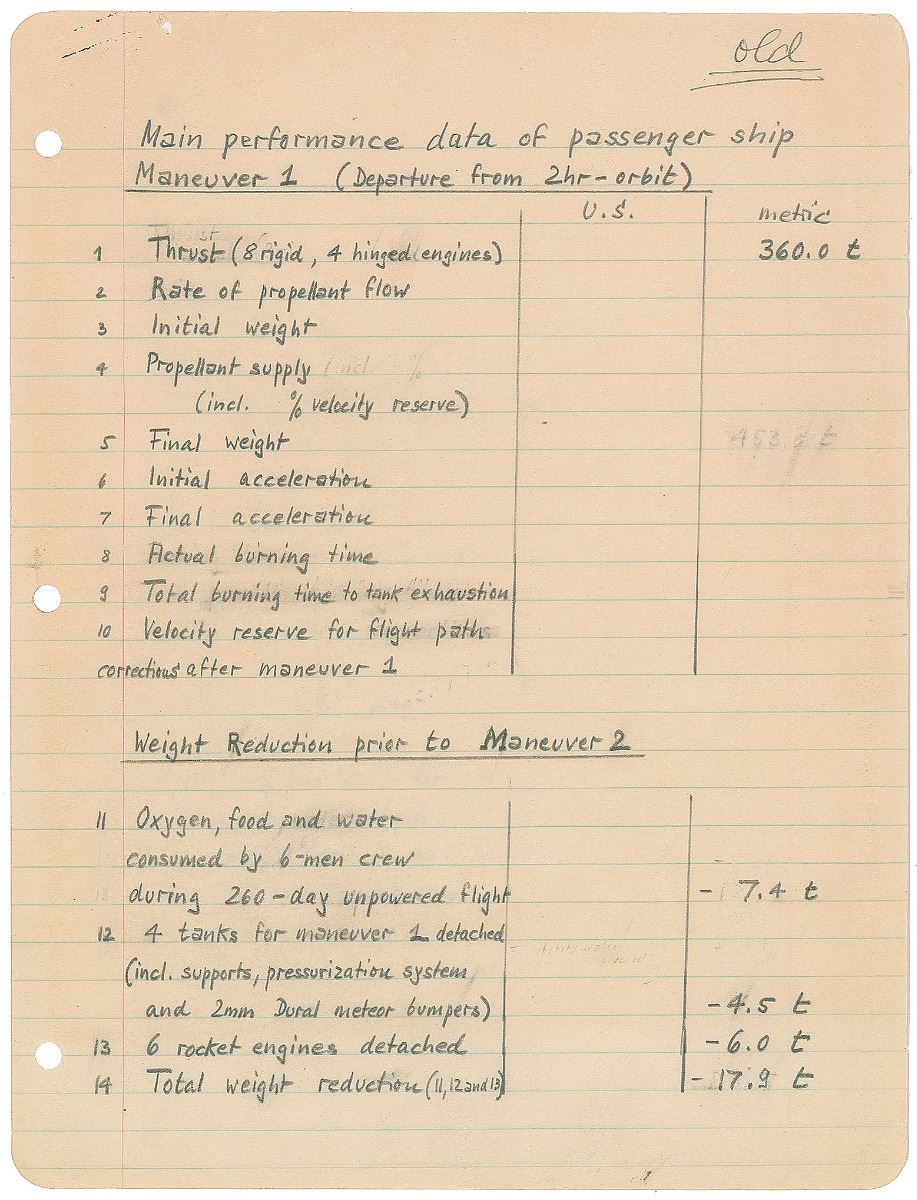 old
Main performance data of passenger ship
Maneuver 1 (Departure from 2hr-orbit)
U.S. metric
1 Thrust (8 rigid, 4 hinged engines) 360.0 t
2 Rate of propellant flow
3 Initial weight
4 Propellant supply (incl. %
(incl. % velocity reserve)
5 Final weight
6 Initial acceleration
7 Final acceleration
8 Actual burning time
9 Total burning time to tank exhaustion
10 Velocity reserve for flight path
corrections after maneuver 1
Weight Reduction prior to Maneuver 2
11 Oxygen, food and water
consumed by 6-men crew
during 260-day unpowered flight - 7.4 t
12 4 tanks for maneuver 1 detached
(incl. supports, pressurization system
and 2mm Dural meteor bumpers) -4.5 t
13 6 rocket engines detached -6.0 t
14 Total weight reduction (11, 12 and 13) - 17.9 t